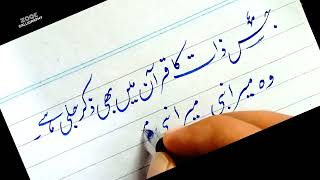 ZOQE
CALLIGRAPHY
جس ذات کا قرآن میں بھی ذکر جلی ہے
وہ میرا نبی میرا نبی